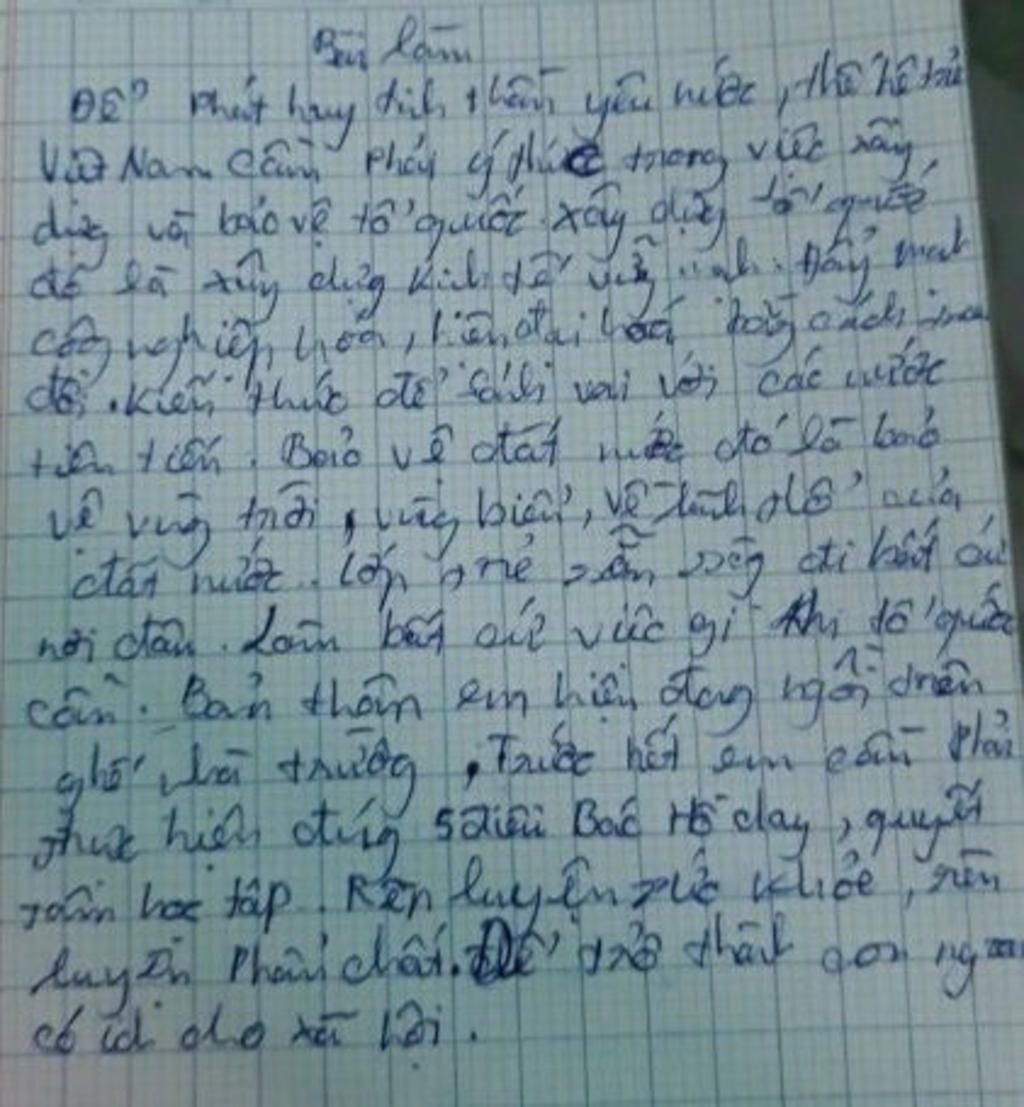 Bài làm
Để phát huy tinh thần yêu nước, thế hệ trẻ
Việt Nam cần phải ý thức trong việc xây
dựng và bảo vệ tổ quốc. xây dựng tổ quốc
đó là xây dựng kinh tế vững mạnh. Đẩy mạnh
công nghiệp hóa, hiện đại hoá bằng cách
đổi. kiến thức để sánh vai với các nước
tiên tiến. Bảo vệ đất nước đó là bảo
vệ vùng trời, vùng biển, về lãnh thổ của
đất nước. Lớp trẻ sẵn sàng đi bất cứ
nơi đâu. Làm bất cứ việc gì khi tổ quốc
cần. Bản thân em hiện đang ngồi trên
ghế nhà trường, Trước hết em cần phải
thực hiện đúng 5 điều Bác Hồ dạy, quyết
tâm học tập. Rèn luyện sức khỏe, rèn
luyện phẩm chất. Để trở thành con người
có ích cho xã hội.